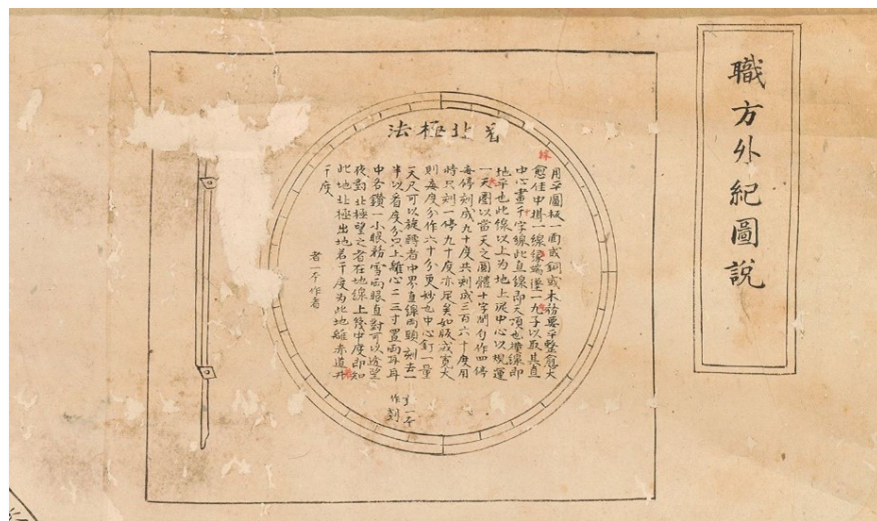 職方外紀圖說
看北極法
用平圓板一面或銅或木務要平整愈大
愈佳中掛一線端墜一九子以取其直
中心畫十字線此直線即天頂也橫線即
地平也此線以上為地上從中心以規運
一天圈以當天之圓體十字間勻作四停
每停刻成九十度共刻成三百六十度用
時只刻一停九十度亦足矣如版或寬大
則每度分作六十分更妙也中心釘一量
天尺可以旋轉者中界直線兩頭刻去一
半以看度分尺上離心二三寸置兩耳耳
中各鑽一小眼務雪兩眼直對可以透望
夜對北極望之者在地線上幾中度即知
此地北極出地若干度為此地離赤道
干度
者一本作看
一本
作劃